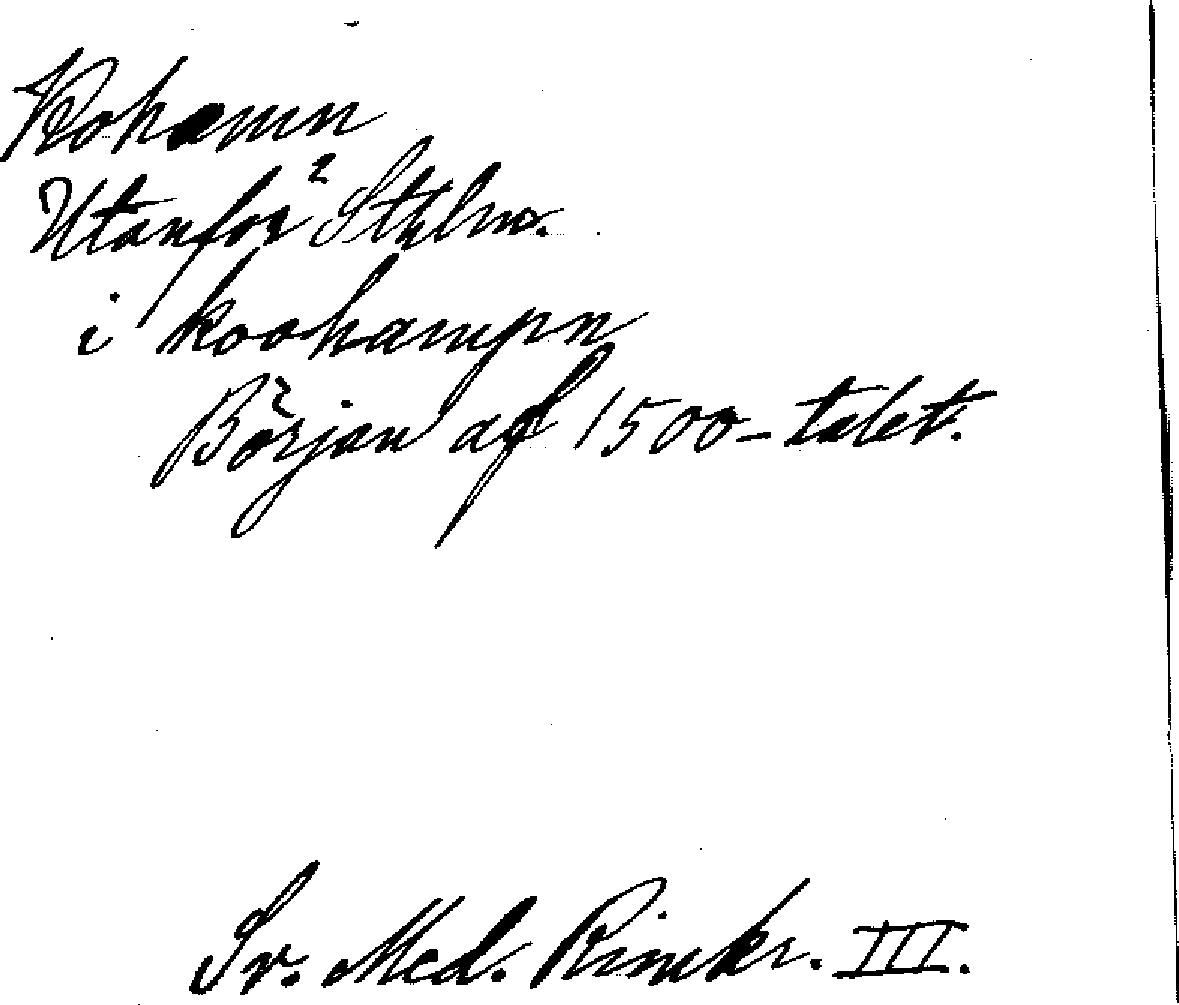 Kohamn
Utanför Sthlm.
i koohampn
Början af 1500-talet.
Sv. Med. Rimkr. III.